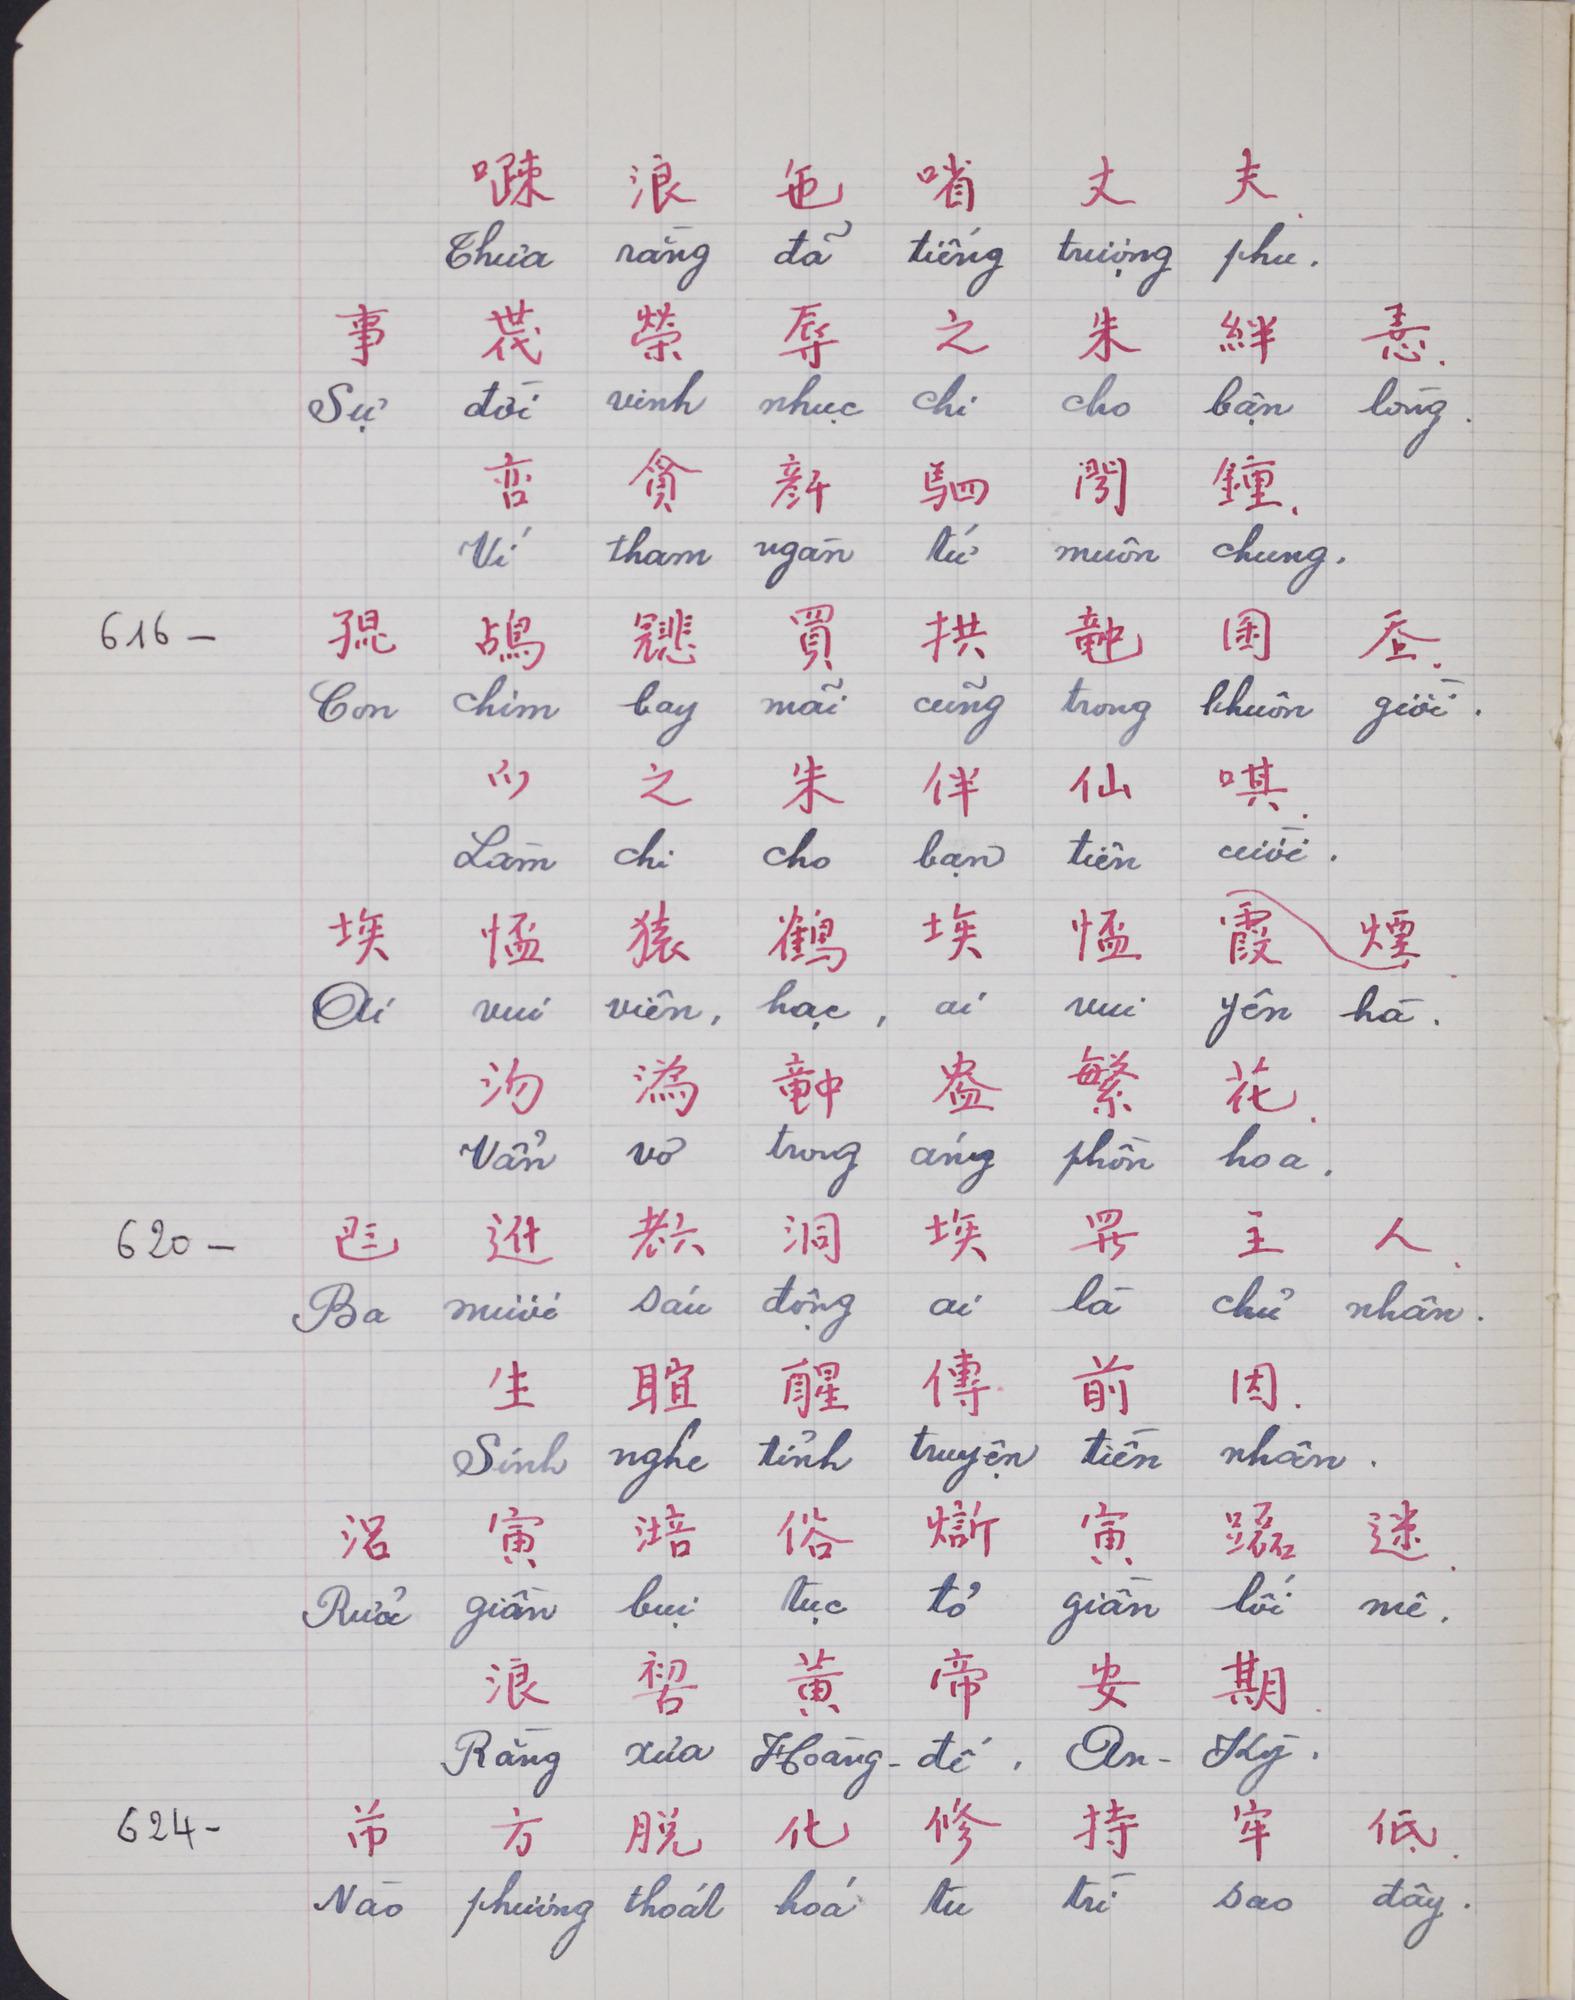 𠽔 浪 㐌 哨 丈 夫.
Thưa rằng đã tiếng trượng phu.
事 𠁀 榮 辱 之 朱 絆 𢚸.
Sự đời vinh nhục chi cho bận lòng.
貪 𠦳 駟 閍 鍾.
Ví tham ngàn tứ muôn chung.
616 – 𡥵 鴣 買 拱 𥪝 囷 𡗶.
Con chim bay mãi cũng trong khuôn giời.
𫜵 之 朱 伴 仙 唭.
Làm chi cho bạn tiên cười.
埃 㥺 猿 鶴 埃 㥺 霞 煙.
Ai vui viên, hạc, ai vui yên hà.
沕 溈 𥪝 盎 繁 花.
Vẩn vơ trong áng phồn hoa.
620 – 𠀧 𨑮 𦒹 洞 埃 羅 主 人.
Ba mươi sáu động ai là chủ nhân.
生 𦖻 醒 傳 前 因.
Sinh nghe tỉnh truyện tiền nhân.
沼 寅 俗 寅 迷.
Rươi giần bụi tục tỏ giần lối mê.
浪 𠸗 黃 帝 安 期.
Rằng xưa Hoàng-đế, An-Kỳ.
624 – 芇 方 脱 化 修 持 牢 低.
Nào phương thoát hoá tu trì sao đây.